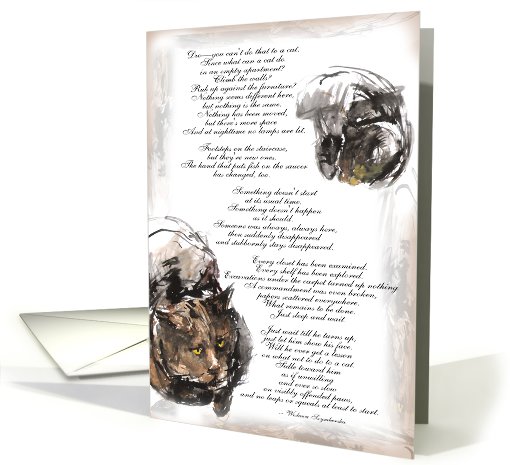 Die—you can't do that to a cat.
Since what can a cat do
in an empty apartment?
Climb the walls?
Rub up against the furniture?
Nothing seems different here,
but nothing is the same.
Nothing has been moved,
but there's more space.
And at nighttime no lamps are lit.
Footsteps on the staircase,
but they're new ones.
The hand that puts fish on the saucer
has changed, too.
Something doesn't start
at its usual time.
Something doesn't happen
as it should.
Someone was always, always here,
then suddenly disappeared
and stubbornly stays disappeared.
Every closet has been examined.
Every shelf has been explored.
Excavations under the carpet turned up nothing.
A commandment was even broken,
papers scattered everywhere.
What remains to be done.
Just sleep and wait.
Just wait till he turns up,
just let him show his face.
Will he ever get a lesson
on what not to do to a cat.
Sidle toward him
as if unwilling
and ever so slow
on visibly offended paws,
and no leaps or squeals at least to start.
-- Wislawa Szymborska